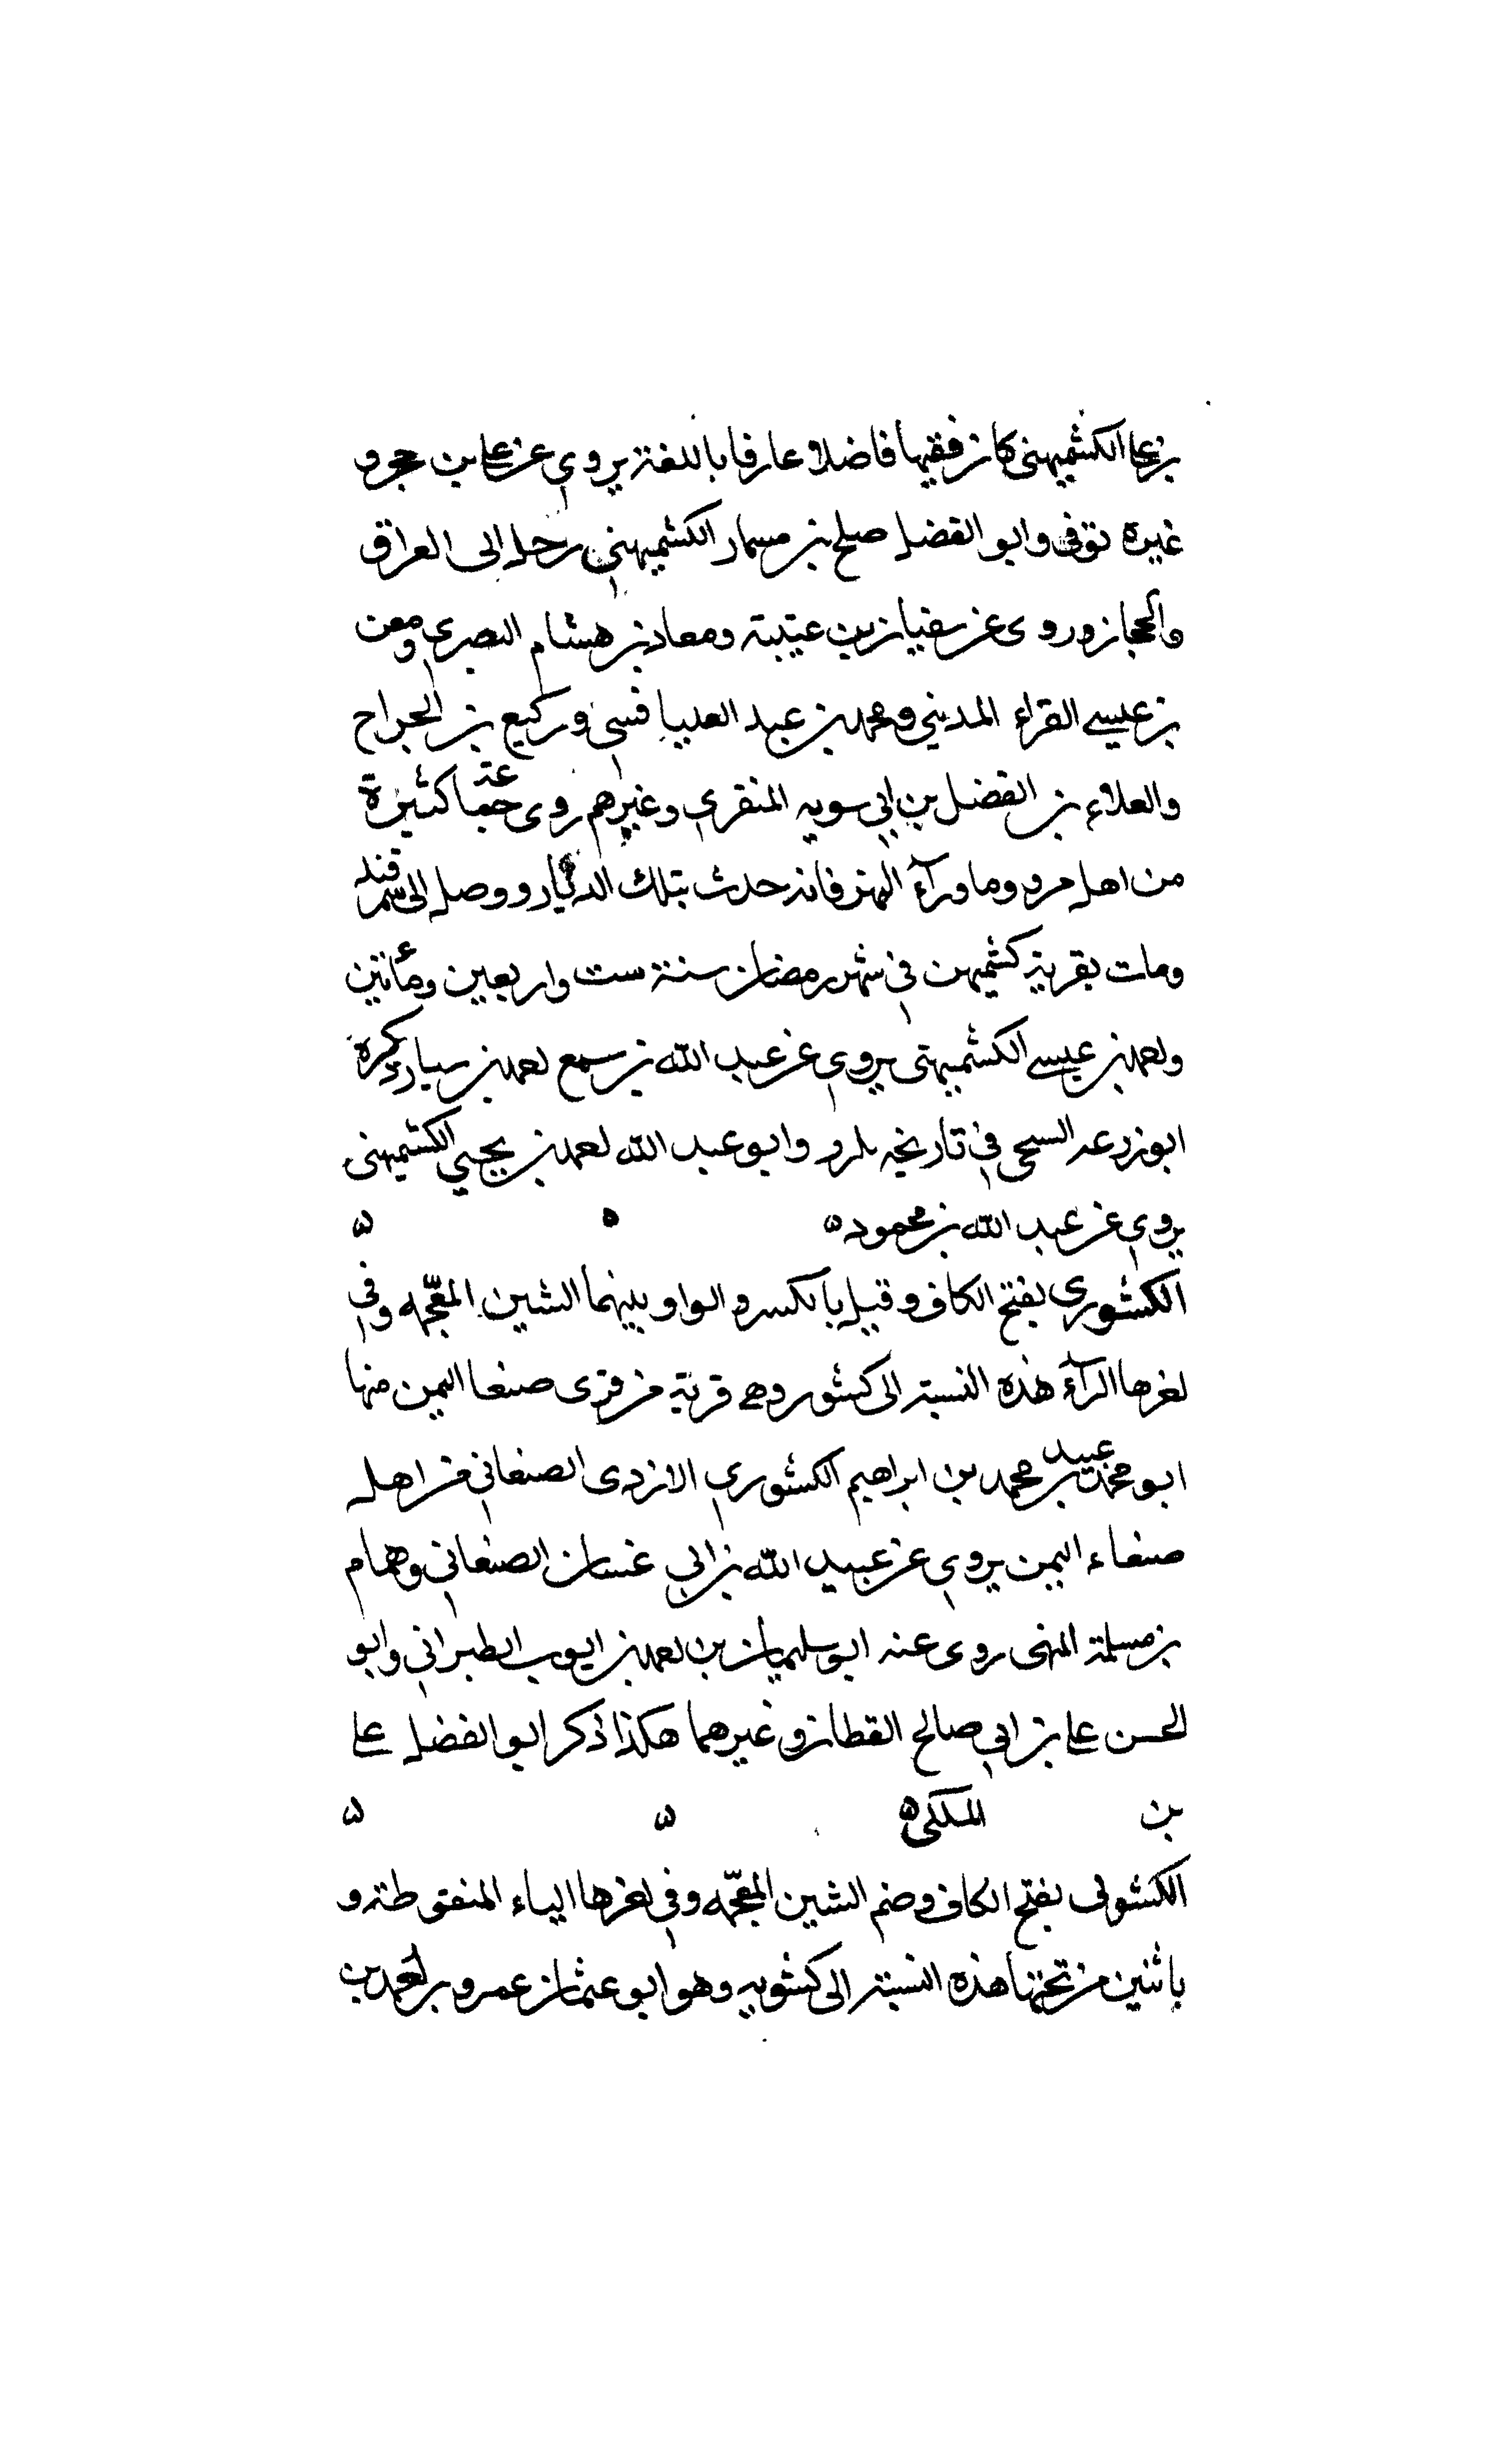 بن على الكشميهنى كان فقيها فاضلا عارفا باللغة يروي عن على بن حجر و
غيره توفى وابو الفضل صلح بن مسمار الكشميهني رحل الى العراق
والحجاز وروى عن سفيان بن عيينة ومعاذ بن هشام البصري ومعن
بن عيسى القزاء المديني ومحمد بن عبد العليافسي ووكيع بن الجراح
والعلاء بن الفضل بن ابي سويه المنقري وغيرهم روى عنه جعبا كثيرة
من اهل مرو وما ورآء النهر فانه حدث بتلك الديار ووصل الى سمرقند
ومات بقرية كشميهن في شهر رمضان سنة ست واربعين ومائتين
واحمد بن عيسى الكشميهنى يروي عن عبد الله بن سمع احمد بن سيار ذكره
ابو زرعه السبحى في تاريخه لمرو وابو عبد الله احمد بن يحيي الكشميهنى
يروي عن عبد الله بن محمود ه ه ه
الكشوري بفتح الكاف وقيل بالكسر و الواو بينهما الشين المعجمه وفي
اخرها الرآء هذه النسبة الى كشور وهى قرية من قرى صنعا اليمن منها
ابو محمد عبيد بن محمد بن ابراهيم الكشوري الازدى الصنعاني من اهل
صنعاء اليمن يروي عن عبيد الله بن ابي غسان الصنعاني وهمام
بن مسلمة المنهى روى عنه ابو سليمان بن احمد بن ايوب الطبراني وابو
الحسن على بن ابي صالح القطان وغيرهما هكذا ذكر ابو الفضل على
بن المملكى ه ه ه
الكشوبى بفتح الكاف وضم الشين المعجمه وفي اخرها الياء المنقوطة و
باثنين من تحتها هذه النسبة الى كشويه وهو ابو عثمان عمرو بن احمد بن